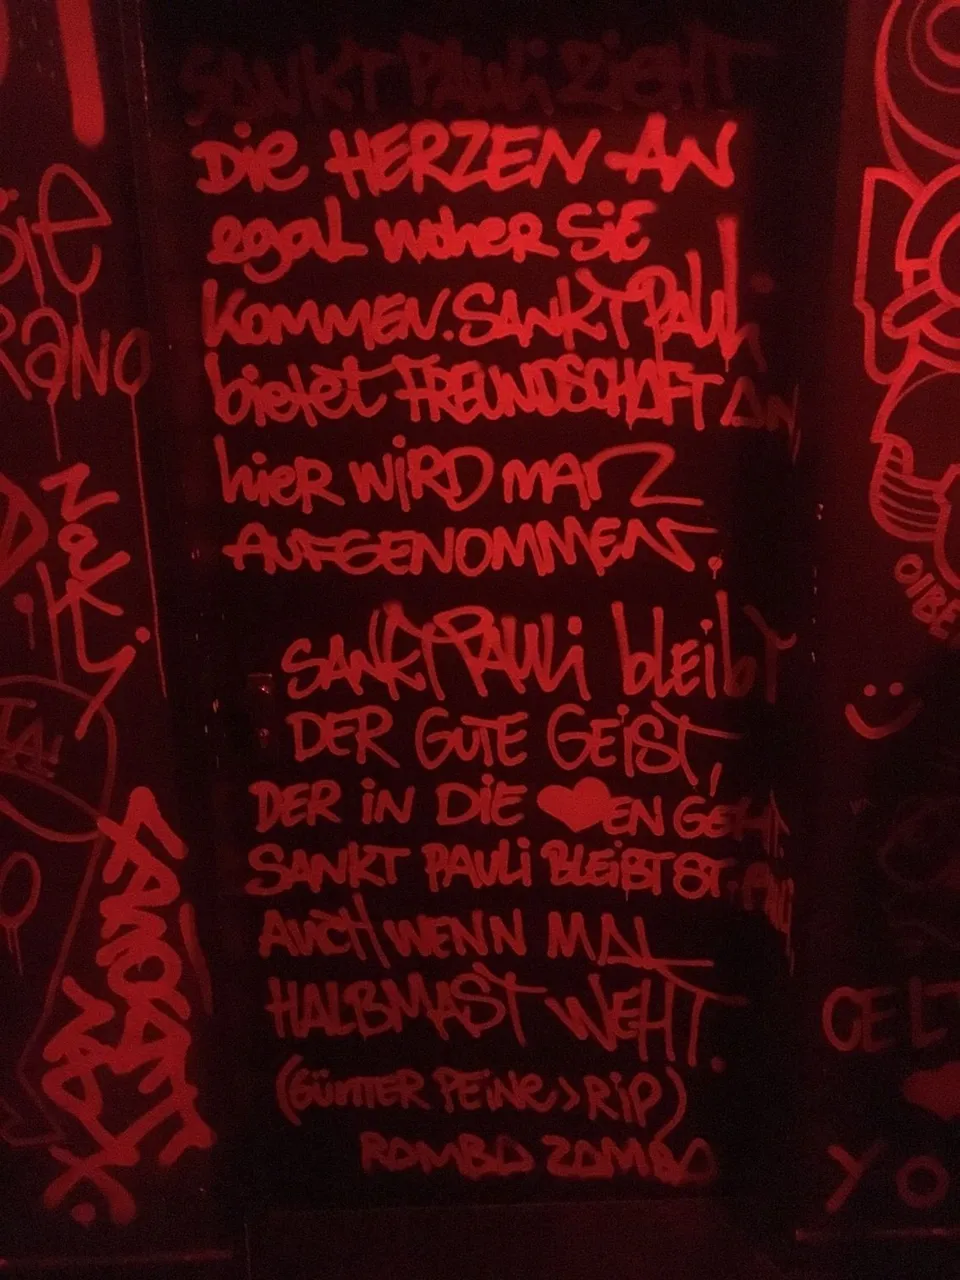 SANKT PAULi ZiEHT
Die HERZEN AN
egal woher Sie
KOMMEN. SANKT PAULi
bietet FREUNDSCHAFT AN,
hieR WiRD MAN
AUFGENOMMEN.
SANKT PAULi bleibT
DER GUTE GEiST,
DER iN DiE ❤EN GEHT.
SANKT PAULi BLEiBT ST. PAULi
AUCH WENN MAL
HALBMAST WEHT.
(GÜNTER PEiNe > RiP)
ROMBO ZOMBO
RANO
ZaKi
OiBE
CELT
YO